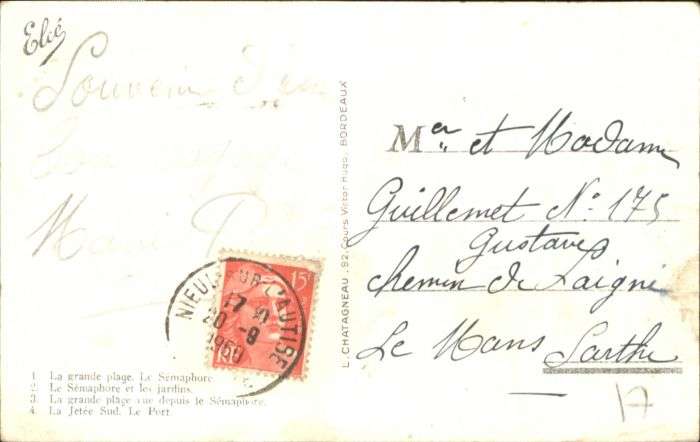 Elcé
Souvenir d'un
L. CHATAGNEAU, 92, Cours Victor Hugo, BORDEAUX
Mer et Madame
Guillemet No 175
Gustaves
chemin de Saigné
Le Mans Sarthe
NIEUL SUR L'AUTISE
17
20-9
1950
15F
1. La grande plage. Le Sémaphore.
2. Le Sémaphore et les jardins.
3. La grande plage vue depuis le Sémaphore.
4. La Jetée Sud. Le Port
17